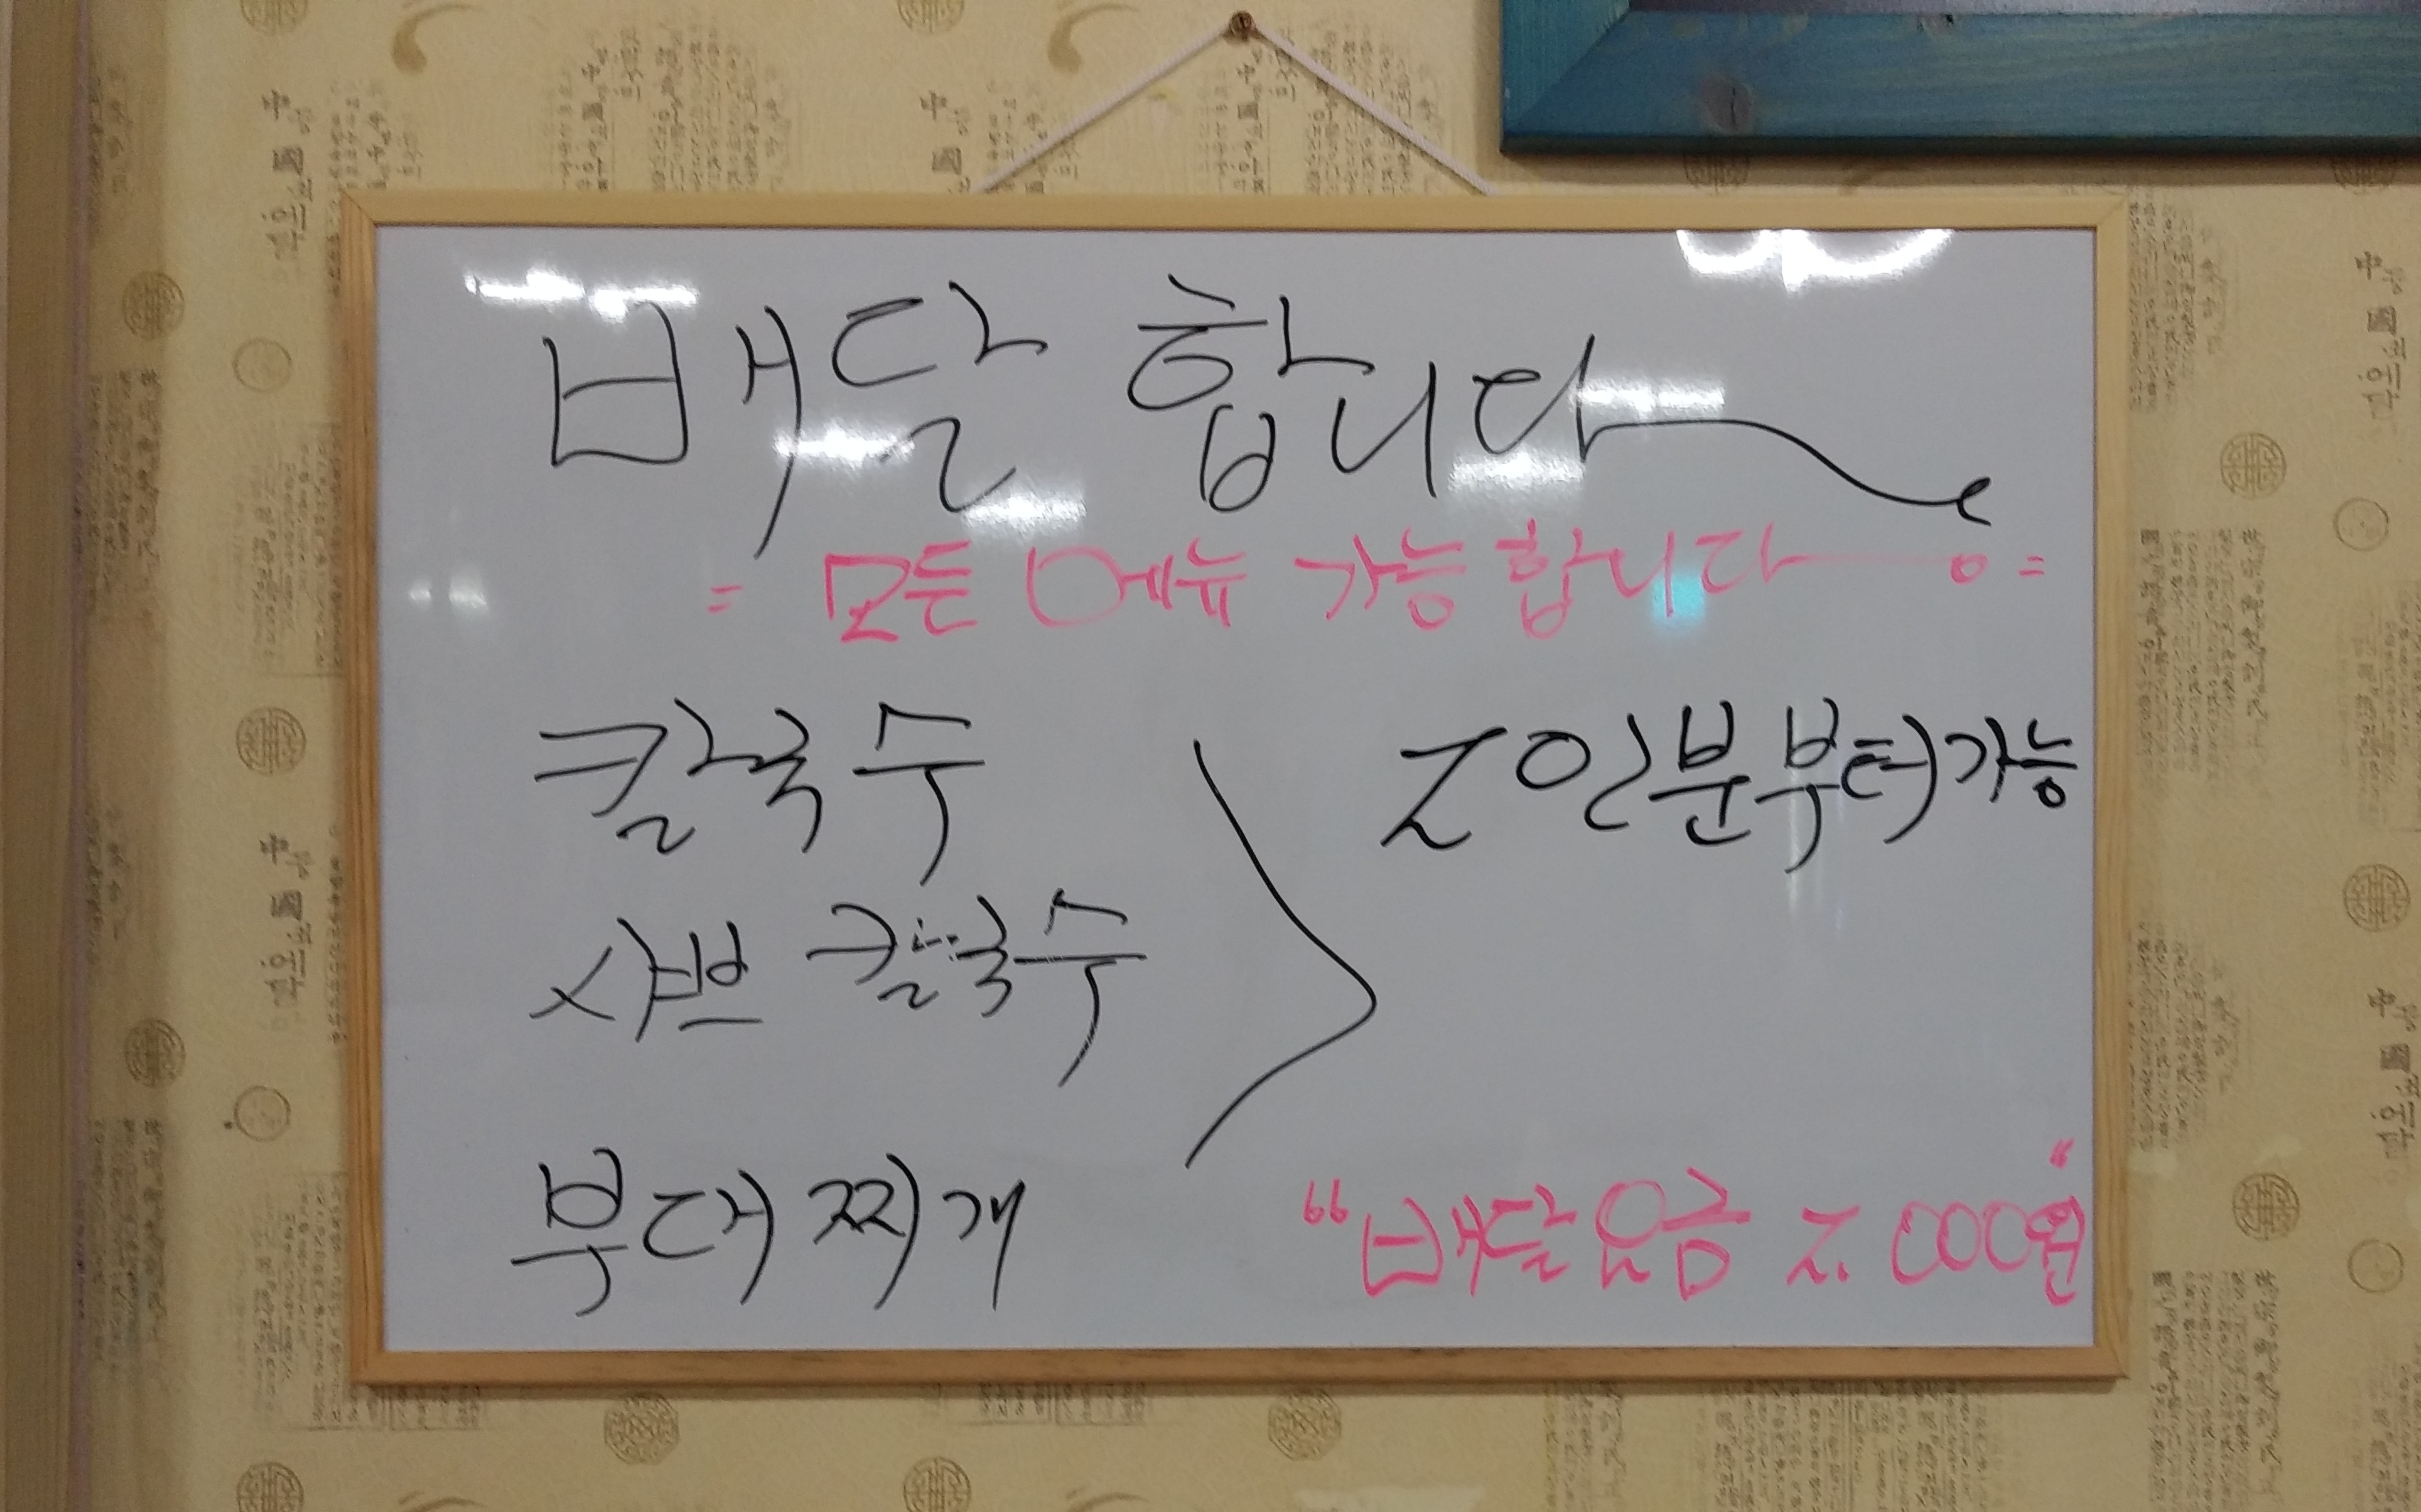 배달 합니다
= 모든 메뉴 가능 합니다 =
칼국수
2인분부터 가능
샤브 칼국수
부대찌개
“배달 요금 2.000원“